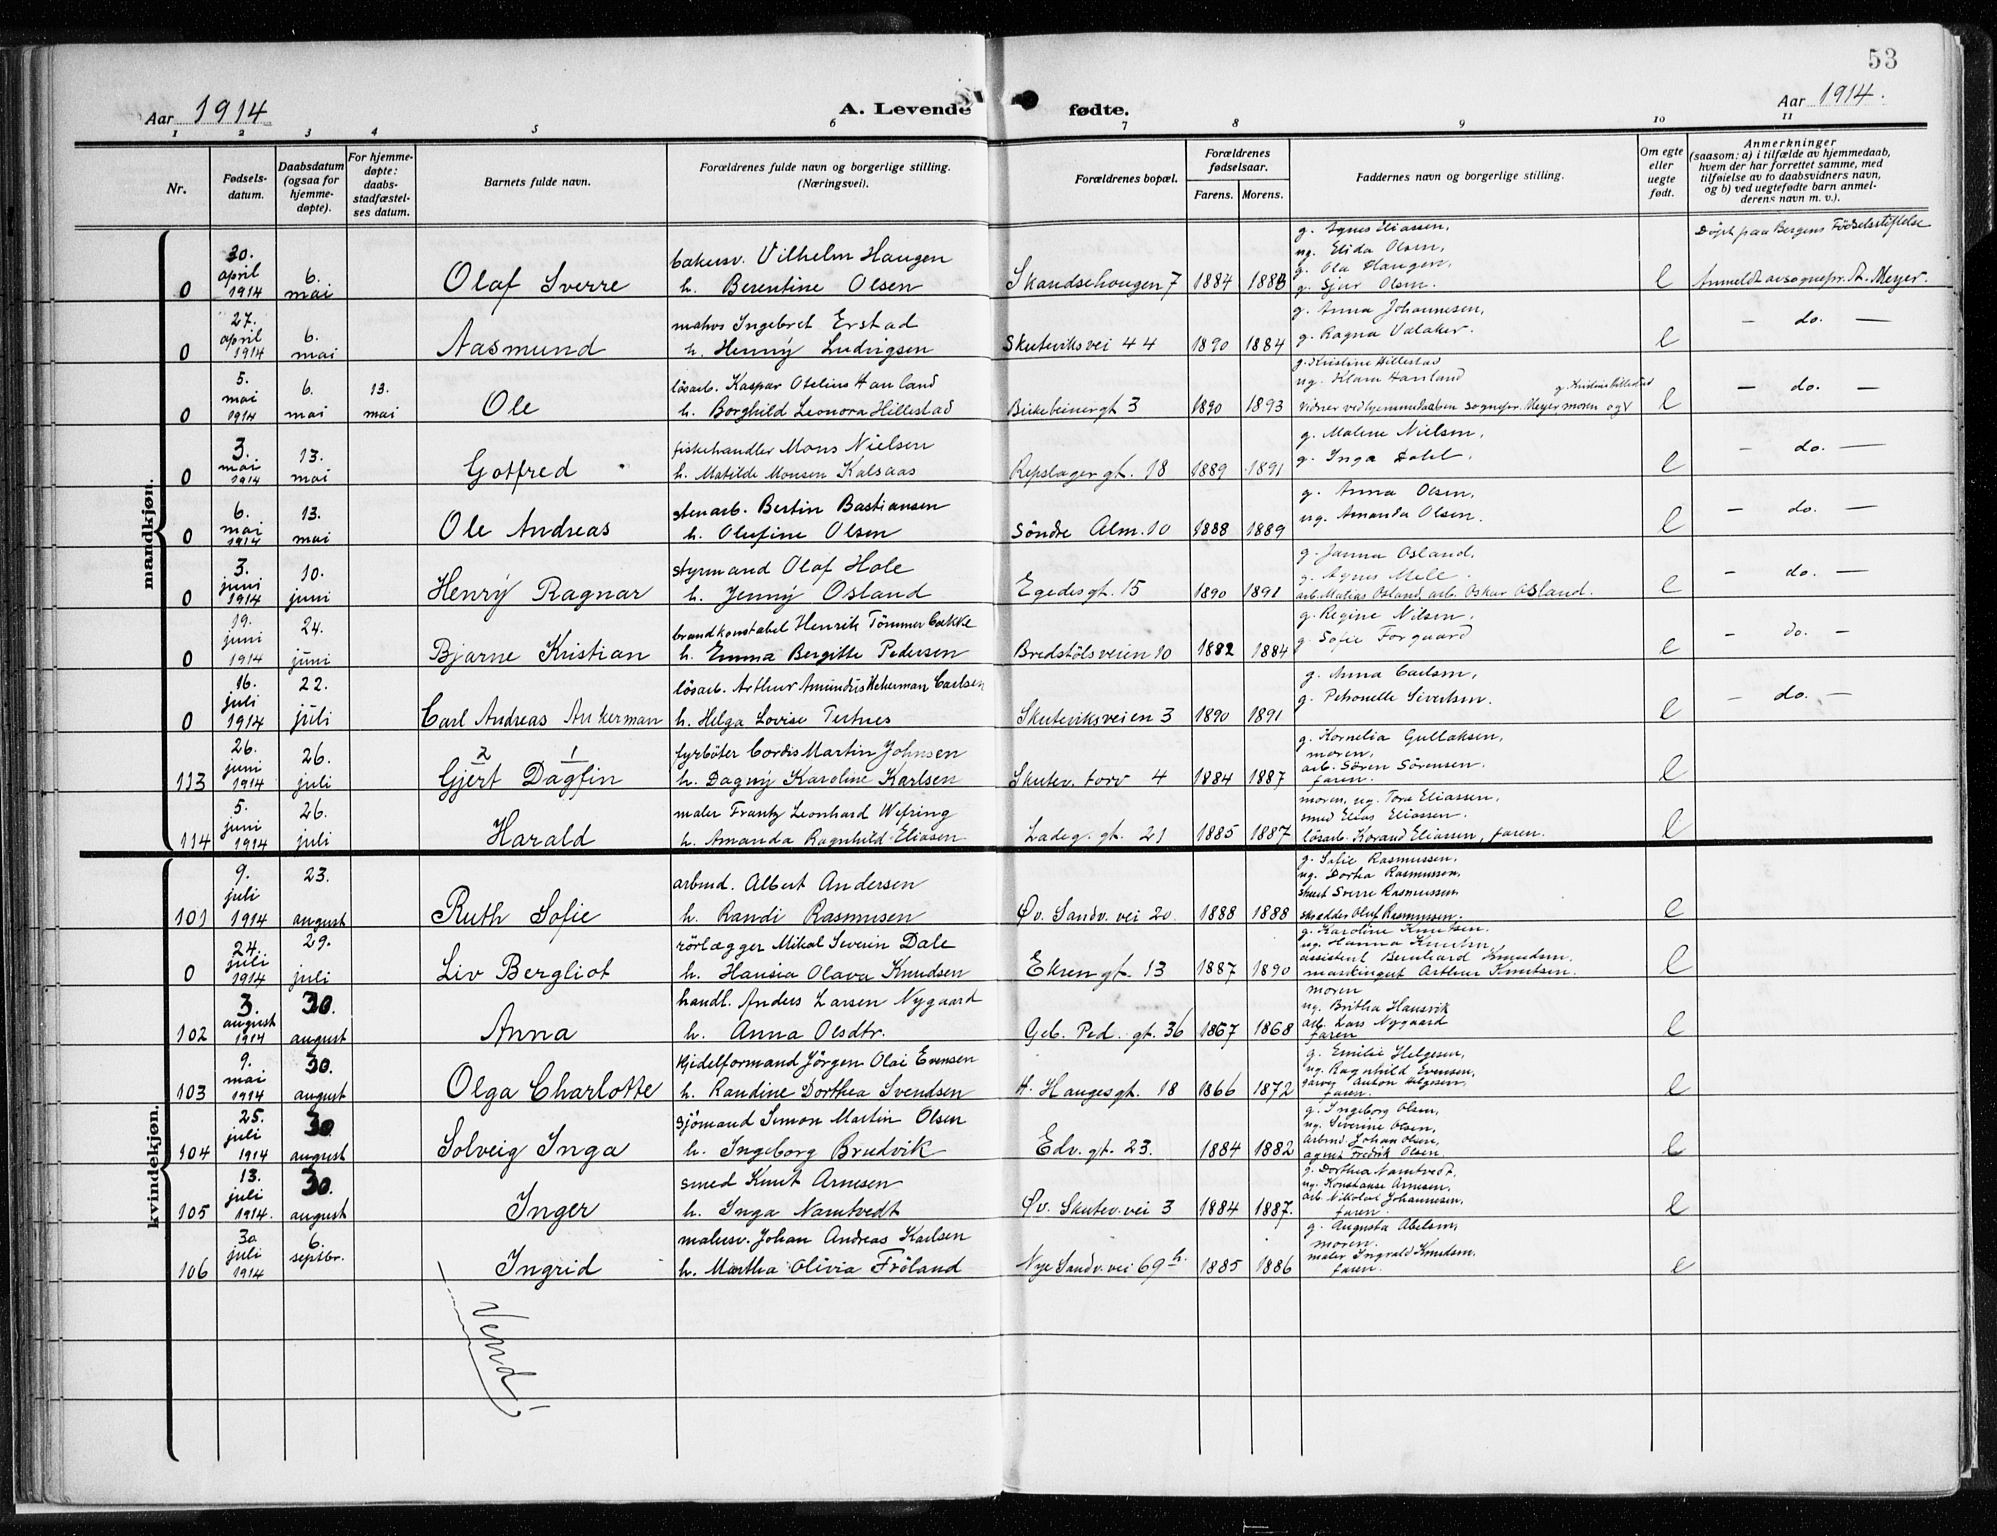 53
Aar 1914
A. Levende fødte.
Aar 1914.
1 2 3 4 5 6 7 8 9 10 11
Nr.
Fødsels-
datum.
Daabsdatum
(ogsaa for
hjemme-
døpte).
For hjemme-
døpte:
daabs-
stadfæstel-
ses datum.
Barnets fulde navn.
Forældrenes fulde navn og borgerlige stilling.
(Næringsvei).
Forældrenes bopæl.
Forældrenes
fødselsaar.
Farens. Morens.
Faddernes navn og borgerlige stilling.
Om egte
eller
uegte
født.
Anmerkninger
(saasom: a) i tilfælde av hjemmedaab,
hvem der har forrettet samme, med
tilføielse av to daabsvidners navn,
og b) ved uegtefødte barn anmel-
derens navn m. v.).
mandkjøn.
0 30. april 1914 6. mai Olaf Sverre
bakersv. Vilhelm Haugen
h. Berentine Olsen
Skandsehougen 7 1884 1883
g. Agnes Eliassen,
ug. Elida Olsen,
g. Ola Haugen,
g. Sjur Olsen.
e
Døpt paa Bergens Fødselsstiftelse
Anmeldt av sognepr. Th. Meyer.
0 27. april 1914 6. mai Aasmund
matros Ingebret Erstad
h. Henny Ludvigsen
Skuteviksvei 44 1890 1884
g. Anna Johannesen,
g. Ragna Valaker.
e — do. —
0 5. mai 1914 6. mai 13. mai Ole
løsarb. Kaspar Otelius Hauland
h. Borghild Leonora Hillestad
Birkebeinergt 3 1890 1893
g. Kristine Hillestad
ug. Klara Hauland
g. Kristine Hillestad
Vidner ved hjemmedaaben sognepr. Meyer, moren og
e — do. —
0 3. mai 1914 13. mai Gotfred
fiskehandler Mons Nielsen
h. Matilde Monsen Kalsaas
Repslager gt. 18 1889 1891
g. Malene Nielsen,
g. Inga Dahl.
e — do. —
0 6. mai 1914 13. mai Ole Andreas
stenarb. Bertin Bastiansen
h. Olufine Olsen
Søndre Alm. 10 1888 1889
g. Anna Olsen,
ug. Amanda Olsen.
e — do. —
0 3. juni 1914 10. juni Henry Ragnar
styrmand Olaf Hole
h. Jenny Osland
Egedesgt. 15 1890 1891
g. Janna Osland,
g. Agnes Mele.
arb. Matias Osland, arb. Oskar Osland.
e — do. —
0 19. juni 1914 24. juni Bjarne Kristian
brandkonstabel Henrik Tømmerbakke
h. Emma Bergitte Pedersen
Bredstølsveien 10 1882 1884
g. Regine Nilsen,
g. Sofie Forgaard
e — do. —
0 16. juli 1914 22. juli Carl Andreas Ankerman
løsarb. Arthur Amundus Ankerman Carlsen
h. Helga Lovise Tertnes
Skuteviksveien 3 1890 1891
g. Anna Carlsen,
g. Petronelle Sivertsen.
e — do. —
2 1
113 26. juni 1914 26. juli Gjert Dagfin
fyrbøter Cordis Martin Johnsen
h. Dagny Karoline Karlsen
Skutev. torv 4 1884 1887
g. Kornelia Gullaksen,
moren,
arb. Søren Sørensen
faren.
e
114 5. juni 1914 26. juli Harald
maler Frantz Leonhard Wefring
h. Amanda Ragnhild Eliasen
Ladeg. gt. 21 1885 1887
moren, ug. Tora Eliassen,
smed Elias Eliassen.
løsarb. Korand Eliassen, faren.
e
kvindekjøn.
101 9. juli 1914 23. august Ruth Sofie
arbmd. Albert Andersen
h. Randi Rasmusen
Øv. Sandv. vei 20. 1888 1888
g. Sofie Rasmussen,
ug. Dortea Rasmussen,
Sverre Rasmussen
skrædder Oluf Rasmussen.
e
0 24. juli 1914 29. juli Liv Bergliot
rørlægger Mikal Severin Dale
h. Hansia Olava Knudsen
Ekren gt. 13 1887 1890
g. Karoline Knutsen.
ug. Hanna Knutsen
assistent Bernhard Knudsen.
maskingut Arthur Knutsen.
e
102 3. august 1914 30. august Anna
handl. Anders Larsen Nygaard
h. Anna Olsdtr.
Geb. Ped. gt. 36 1867 1868
moren
ug. Britha Hausvik
arb. Lars Nygaard
faren
e
103 9. mai 1914 30. august Olga Charlotte
Kjedelformand Jørgen Olai Evensen
h. Randine Dorthea Svendsen
H. Haugesgt. 18 1866 1872
g. Emilie Helgesen,
ug. Ragnhild Evensen,
Anton Helgesen,
faren.
e
104 25. juli 1914 30 august Solveig Inga
sjømand Simon Martin Olsen
h. Ingeborg Brudvik
Edv. gt. 23. 1884 1882
g. Ingeborg Olsen,
ug. Severine Olsen,
arbmd. Johan Olsen,
agent Fredrik Olsen.
e
105 13. juli 1914. 30. august Inger
smed Knut Arnesen
h. Inga Namtvedt
Øv. Skutev. vei 3 1884 1887.
g. Dorthea Namtvedt.
ug. Konstanse Arnesen,
arb. Nikolai Johannesen,
faren.
e
106 30 juli 1914 6. septbr. Ingrid
malersv. Johan Andreas Karlsen
h. Martha Olivia Frøland
Nye Sandv. vei 69 h. 1885 1886
g. Augusta Abelsen,
moren.
maler Ingvald Knudsen,
faren.
e
Vend!